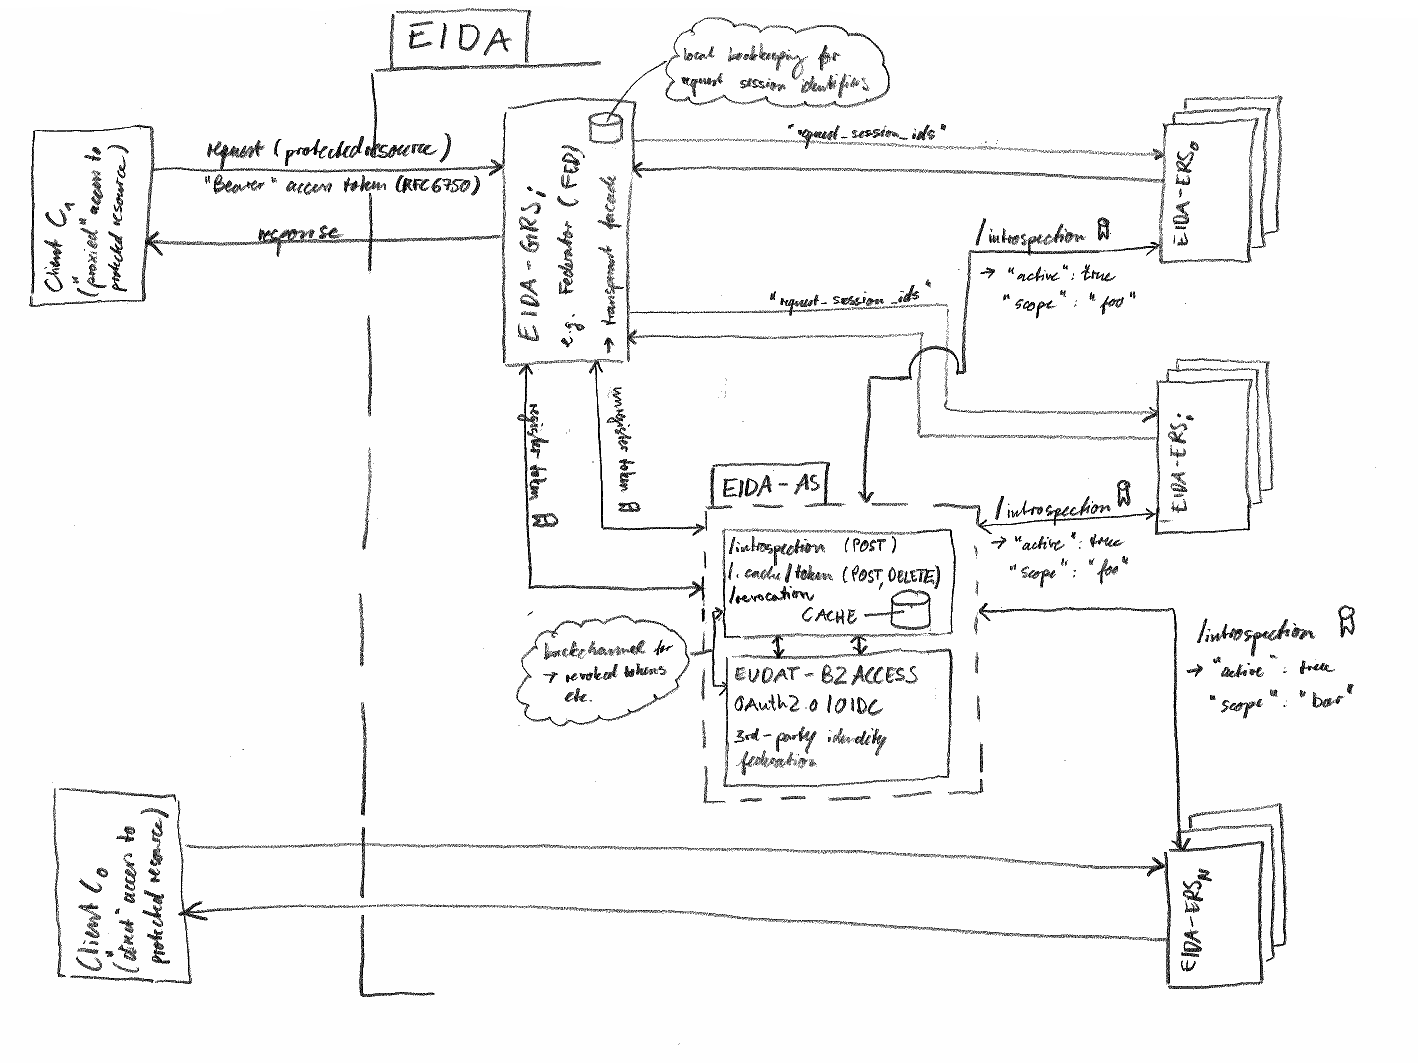 EIDA
local bookkeeping for
request session identifiers
Client C₁
("proxied" access to
protected resource)
request (protected resource)
"Bearer" access token (RFC6750)
response
EIDA-GRSⱼ
e.g. Federator (FED)
→ transparent facade
"request_session_ids"
EIDA-ERS₀
/introspection
→ "active": true
"scope": "foo"
"request_session_ids"
EIDA-ERSᵢ
register token
unregister token
EIDA-AS
/introspection
→ "active": true
"scope": "foo"
/introspection (POST)
/.cache/token (POST, DELETE)
/revocation
CACHE
backchannel for
→ revoked tokens
etc.
EUDAT-B2ACCESS
OAuth2.0/OIDC
3rd-party identity
federation
/introspection
→ "active": true
"scope": "bar"
Client C₀
("direct" access to
protected resource)
EIDA-ERS_N